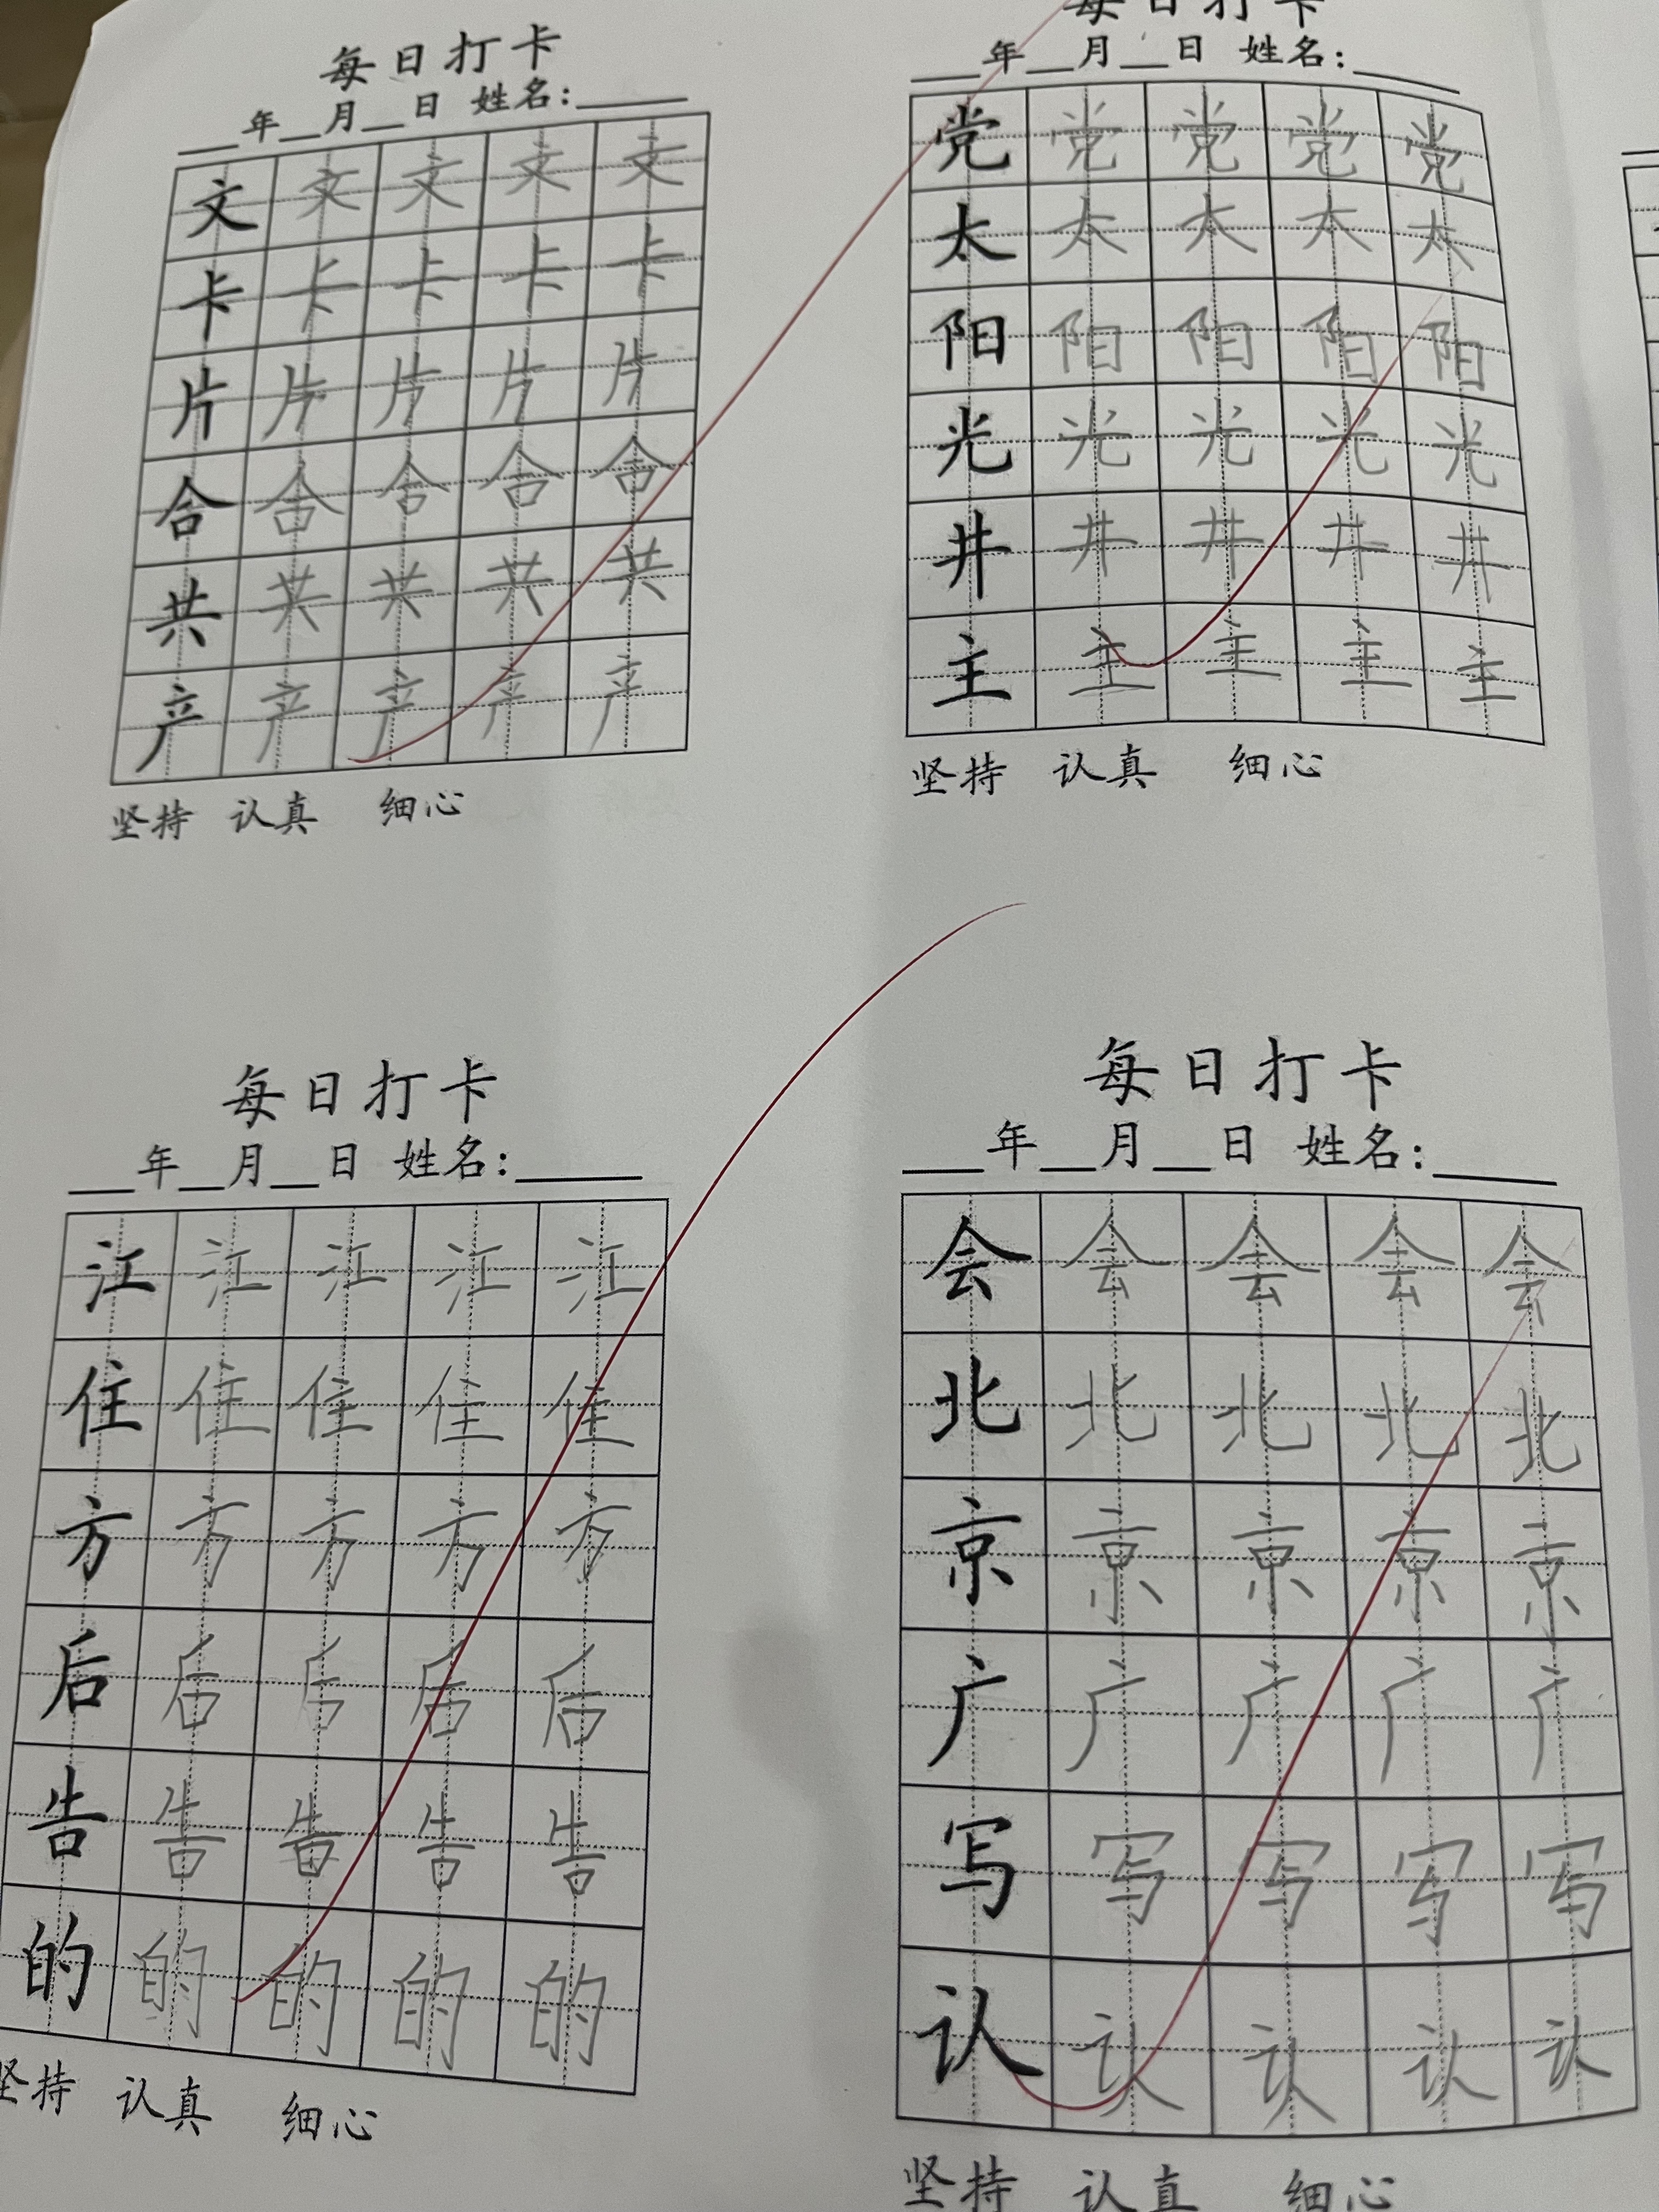 每日打卡
年 月 日 姓名:
文 文 文 文 文
卡 卡 卡 卡 卡
片 片 片 片 片
合 合 合 合 合
共 共 共 共 共
产 产 产 产 产
坚持 认真 细心
每日打卡
年 月 日 姓名:
党 党 党 党 党
太 太 太 太 太
阳 阳 阳 阳 阳
光 光 光 光 光
井 井 井 井 井
主 主 主 主 主
坚持 认真 细心
每日打卡
年 月 日 姓名:
江 江 江 江 江
住 住 住 住 住
方 方 方 方 方
后 后 后 后 后
告 告 告 告 告
的 的 的 的 的
坚持 认真 细心
每日打卡
年 月 日 姓名:
会 会 会 会 会
北 北 北 北 北
京 京 京 京 京
广 广 广 广 广
写 写 写 写 写
认 认 认 认 认
坚持 认真 细心